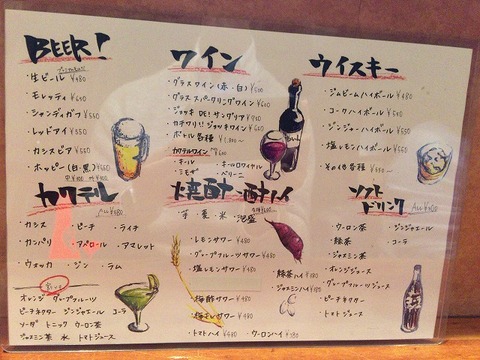 BEER!
・生ビール ¥480
・モレッティ ¥600
・シャンディガフ ¥550
・レッドアイ ¥550
・カシスビア ¥550
・ホッピー(白・黒) ¥600
ワイン
・グラスワイン(赤・白)
・グラススパークリングワイン
・ジョッキ DE! サングリア
・カチワリ!ジョッキワイン ¥600
・ボトル各種
・カクテルワイン
・キール ・キールロワイヤル
・ミモザ ・ベリーニ
ウイスキー
・ジムビームハイボール ¥480
・コークハイボール ¥550
・ジンジャーハイボール ¥550
・塩レモンハイボール ¥550
・その他各種
カクテル
ALL ¥480
・カシス ・ピーチ ・ライチ
・カンパリ ・アペロール ・アマレット
・ウォッカ ・ジン ・ラム
オレンジ グレープフルーツ
ピーチネクター ジンジャエール コーラ
ソーダ トニック ウーロン茶
ジャスミン茶 水 トマトジュース
焼酎・酎ハイ
芋 麦 米 泡盛
・レモンサワー ¥480
・グレープフルーツサワー ¥480
・塩レモンサワー ¥480
・緑茶ハイ ¥480
・ジャスミンハイ ¥480
・梅酢サワー ¥480
・梅干しサワー ¥480
・トマトハイ ¥480 ・ウーロンハイ ¥480
ソフトドリンク
・ウーロン茶 ・ジンジャエール
・緑茶 ・コーラ
・ジャスミン茶
・オレンジジュース
・グレープフルーツジュース
・ピーチネクター
・トマトジュース